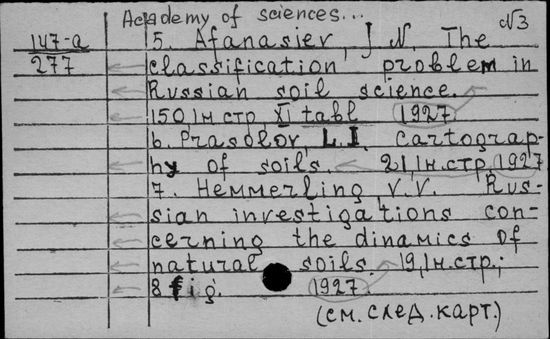 Academy of sciences... №3
147-а 5. Afanasiev, J. N. The
277 classification problem in
Russian soil science.
150, 1н.стр, XI tabl 1927
6. Prasolov, L.I. Cartograp-
hy of soils. 21, 1н.стр, 1927
7. Hemmerling, V.V. Rus-
sian investigations con-
cerning the dinamics of
natural soils. 19, 1н.стр.;
8 fig. 1927.
(см. след. карт.)